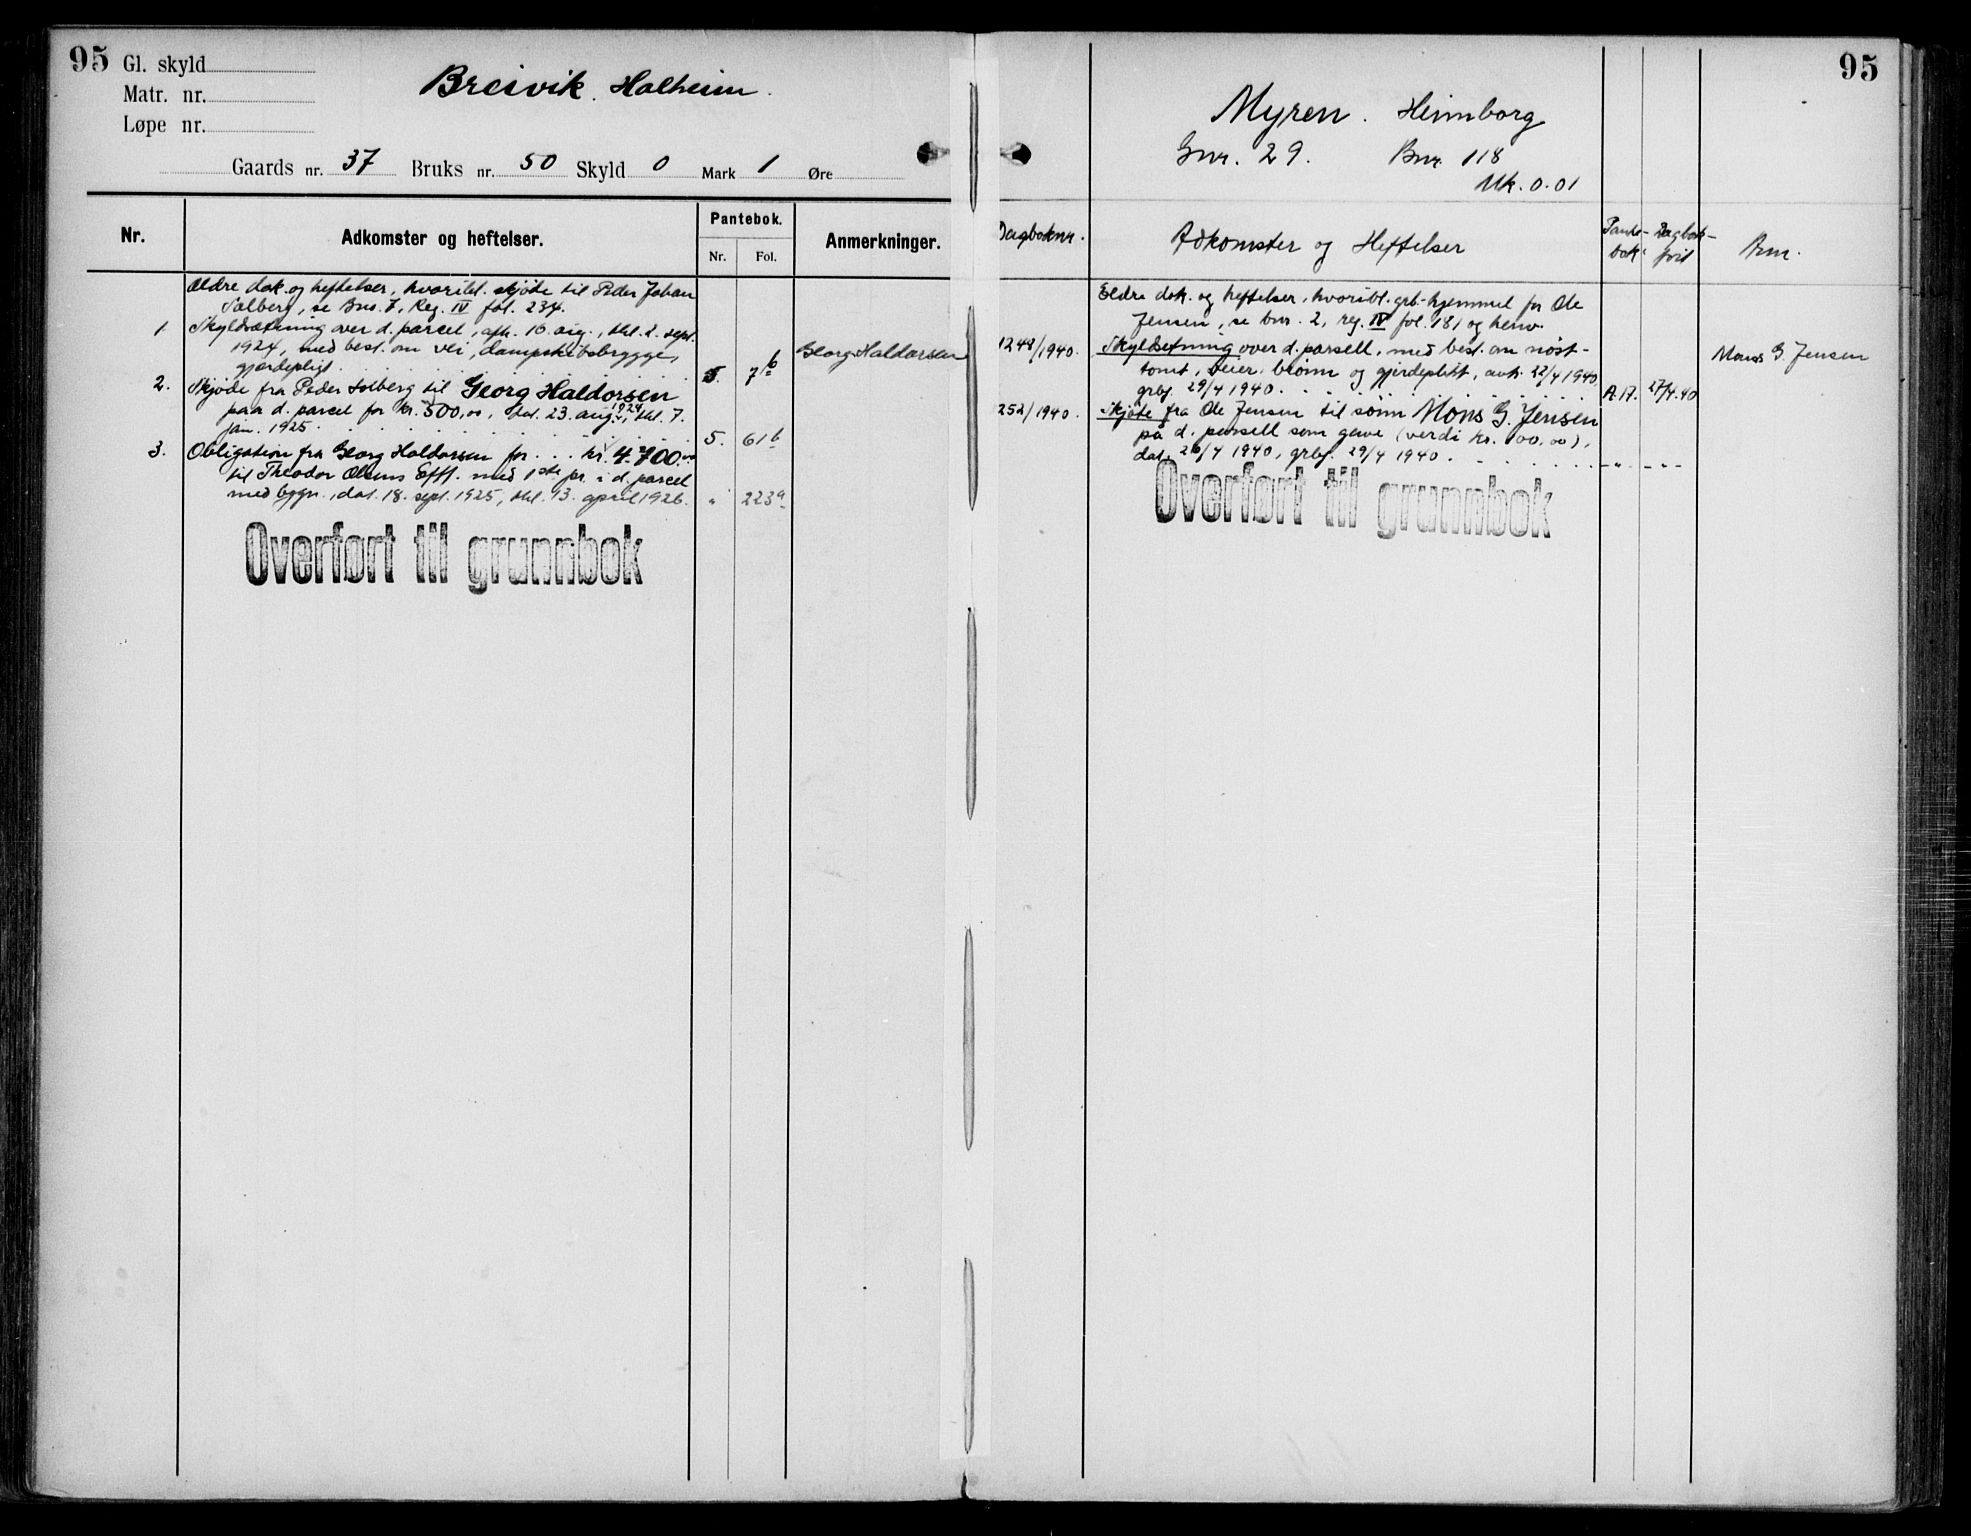 95
Gl. skyld
Matr. nr.
Løpe nr.
Breivik. Halheim.
Gaards nr. 37 Bruks nr. 50 Skyld 0 Mark 1 Øre
Nr.
Adkomster og heftelser.
Pantebok.
Nr. Fol.
Anmerkninger.
Ældre dok. og heftelser, hvoribl. skjøte til Peder Johan
Solberg, se Bns. 7, Reg. IV fol. 234.
1. Skyldsætning over d. parcel, afh. 10. aug., thl. 2. sept.
1924, med best. om vei, dampskibsbrygge,
gjærdepligt. 5. 7b Georg Haldorsen
2. Skjøde fra Peder Solberg til Georg Haldorsen
paa d. parcel for kr. 500,00, dat. 23. aug. 1924, thl. 7.
jan. 1925. 5. 61b
3. Obligation fra Georg Haldorsen for . . . kr. 4.700.00
til Theodor Olsens Eftf. med 1ste pr. i d. parcel
med bygn., dat. 18. sept. 1925, thl. 13. april 1926. " 223a
Overført til grunnbok
95
Myren. Heimborg
Gnr. 29. Bnr. 118
Mk. 0.01
Dagboknr.
Adkomster og Heftelser
Pante-
bok
Dagbok-
ført
Anm.
Eldre dok. og heftelser, hvoribl. grb.-hjemmel for Ole
Jensen, se bnr. 2, reg. IV fol. 181 og henv.
1248/1940. Skyldsetning over d. parsell, med best. om nøst-
tomt, veier, brønn og gjerdeplikt, avh. 22/4 1940,
grbf. 29/4 1940. A.17. 27/4.40 Mons G. Jensen
252/1940. Skjøte fra Ole Jensen til sønn Mons G. Jensen
på d. parsell som gave (verdi kr. 100,00),
dat. 26/4 1940, grbf. 29/4 1940. -"- -"-
Overført til grunnbok